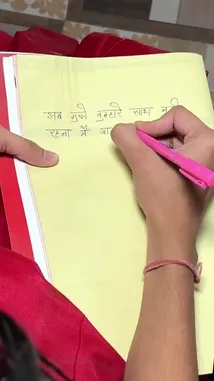 अब मुझे तुम्हारे साथ नही
रहना मैं जा